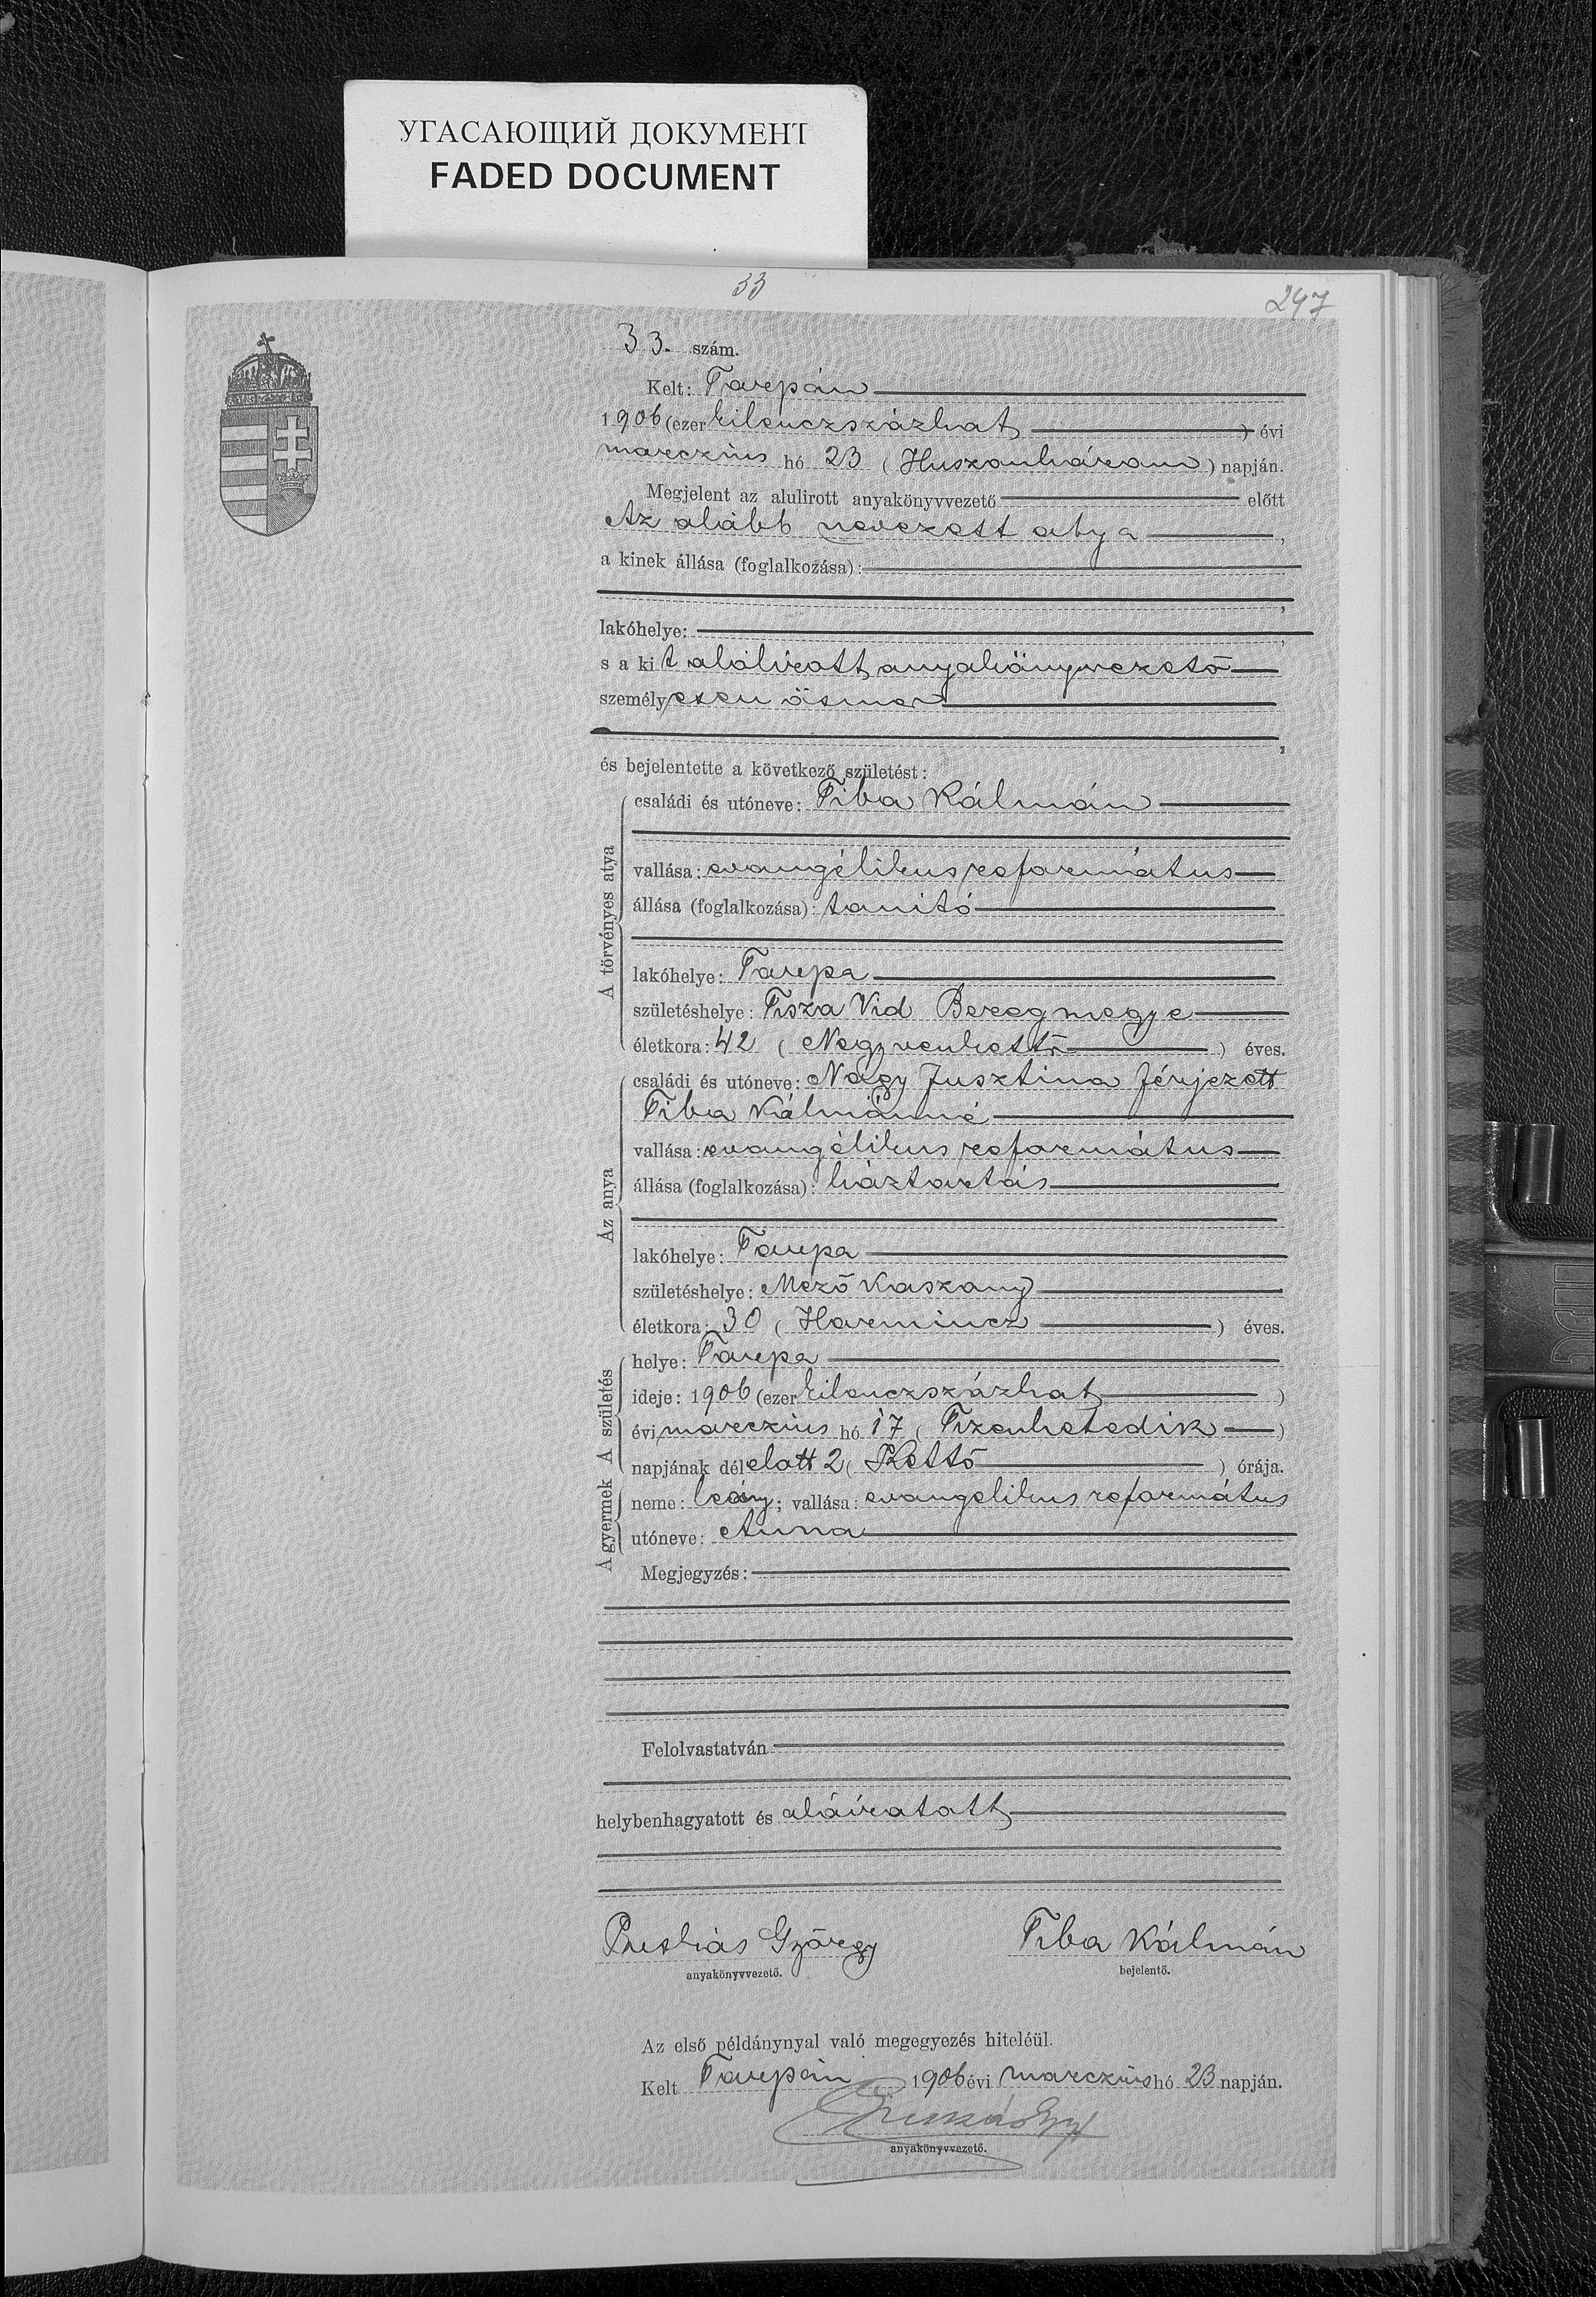 УГАСАЮЩИЙ ДОКУМЕНТ
FADED DOCUMENT
33
247
33. szám.
Kelt: Tarpán
1906 (ezer kilenczszázhat) évi
marczius hó 23 (Huszonhárom) napján.
Megjelent az alulirott anyakönyvvezető előtt
Az alább nevezett atya,
a kinek állása (foglalkozása):
,
lakóhelye: ,
s a kit alólirott anyakönyvvezető
személyesen ösmer
,
és bejelentette a következő születést:
A törvényes atya
családi és utóneve: Tiba Kálmán
vallása: evangélikus református
állása (foglalkozása): tanitó
lakóhelye: Tarpa
születéshelye: Tisza Vid Beregmegye
életkora: 42 (Negyvenkettő) éves.
Az anya
családi és utóneve: Nagy Jusztina férjezett
Tiba Kálmánné
vallása: evangélikus református
állása (foglalkozása): háztartás
lakóhelye: Tarpa
születéshelye: Mező Kaszony
életkora: 30 (Harmincz) éves.
A születés
helye: Tarpa
ideje: 1906 (ezer kilenczszázhat)
évi márczius hó 17 (Tizenhetedik)
napjának délelott 2 (Kettő) órája.
A gyermek
neme: leány; vallása: evangelikus református
utóneve: Anna
Megjegyzés:
Felolvastatván
helybenhagyatott és aláiratott
György Tiba Kálmán
anyakönyvvezető. bejelentő.
Az első példánynyal való megegyezés hiteléül.
Kelt Tarpán 1906 évi marczius hó 23 napján.
anyakönyvvezető.